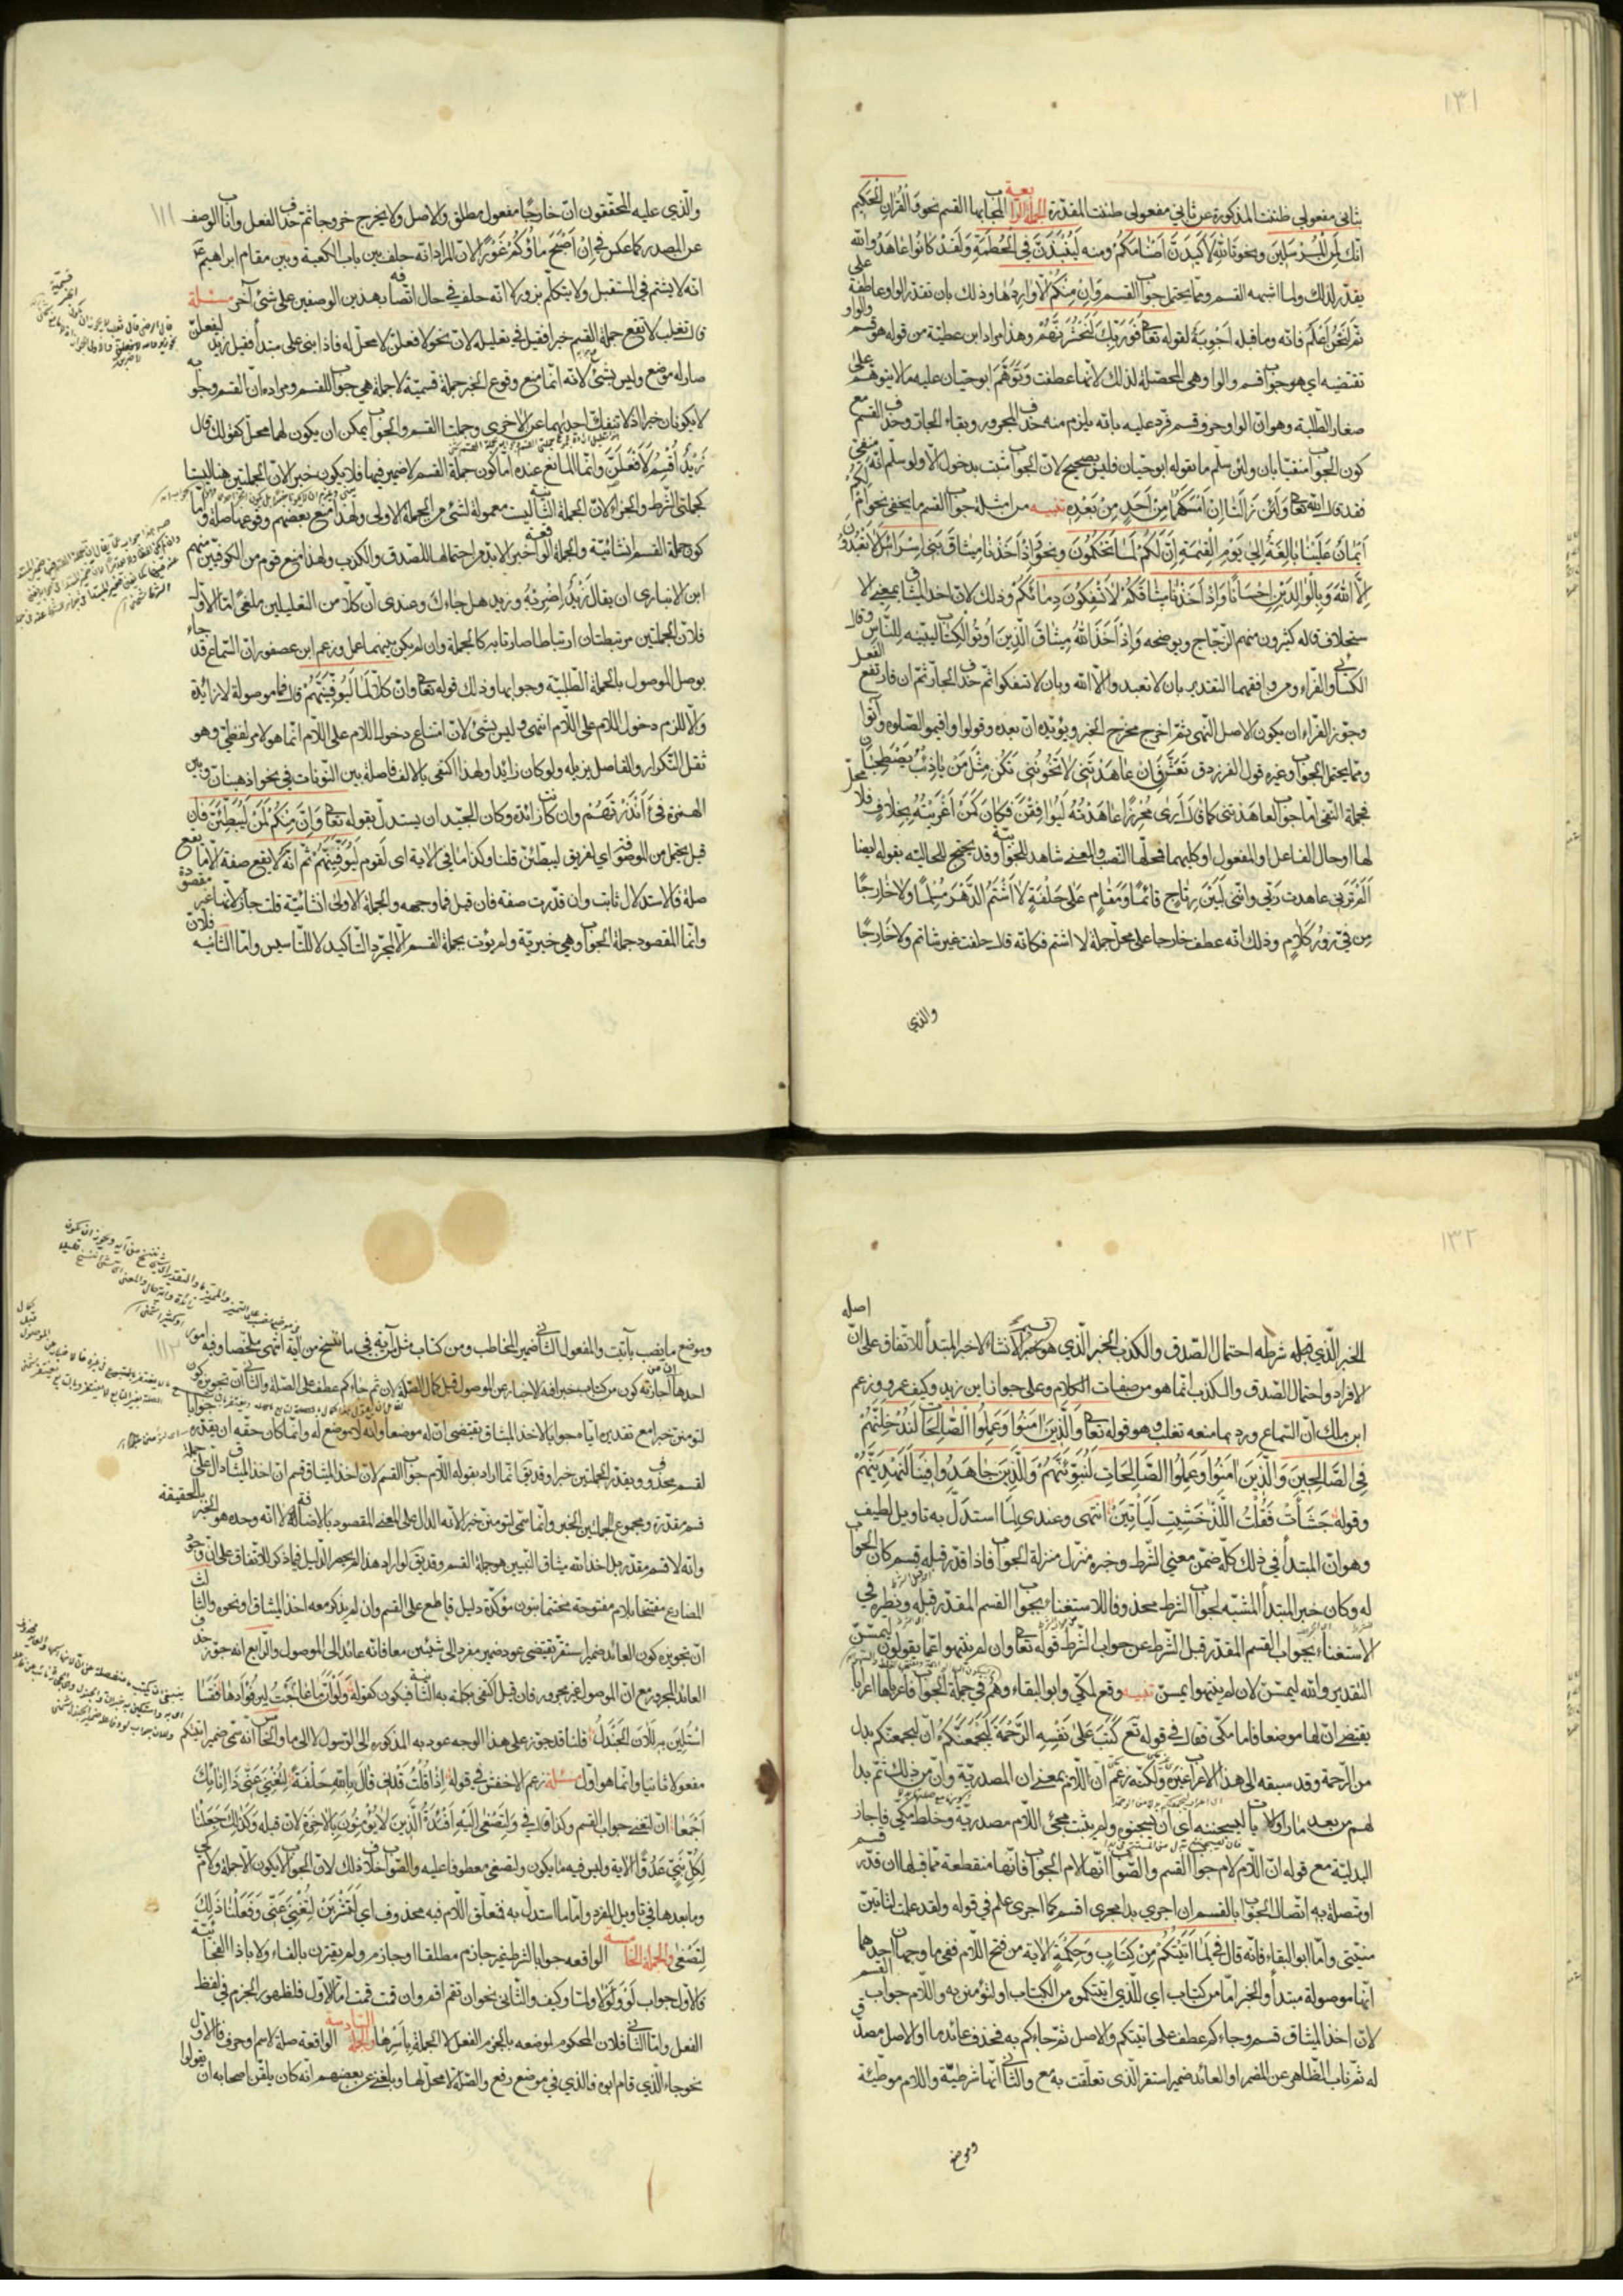 ١٣١
ثاني مفعولي ظننت المذكورة عن ثاني مفعولي ظننت المقدرة الجملة الرابعة المجاب بها القسم نحو والقرآن الحكيم
انك لمن المرسلين ونحو تالله لاكيدن اصنامكم ومنه لينبذن في الحطمة ولقد كانوا عاهدوا الله
يقدر لذلك ولما اشبهه القسم ومما يحتمل جواب القسم وان منكم الا واردها وذلك بان تقدر الواو عاطفة على
ثم لنحن اعلم فانه وما قبله اجوبة لقوله تعالى فوربك لنحشرنهم وهذا مراد ابن عطية من قوله هو قسم والواو
تقتضيه اي هو جواب قسم والواو هي المحصلة لذلك لانها عطفت وتوهم ابو حيان عليه ما لا يتوهم على
صغار الطلبة وهو ان الواو حرف قسم فرد عليه بانه يلزم منه حذف المجرور وبقاء الجار وحذف القسم مع
كون الجواب منفيا بان ولئن سلم ما يقوله ابو حيان فليس بصحيح لان الجواب مثبت بدخول الا ولو سلم انه منفي
فقد قال الله تعالى ولئن زالتا ان امسكهما من احد من بعده تنبيه من امثلة جواب القسم ما يخفى نحو ام لكم
ايمان علينا بالغة الى يوم القيمة ان لكم لما تحكمون ونحو واذ اخذنا ميثاق بني اسرائيل لا تعبدون
الا الله وبالوالدين احسانا واذ اخذنا ميثاقكم لا تسفكون دمائكم وذلك لان اخذ الميثاق بمعنى الا
ستحلاف قاله كثيرون منهم الزجاج ويوضحه واذ اخذ الله ميثاق الذين اوتوا الكتاب ليبيننه للناس وقال
الكسائي والفراء ومن وافقهما التقدير بان لا تعبدوا الا الله وبان لا تسفكوا ثم حذف الجار ثم ان فارتفع الفعل
وجوز الفراء ان يكون الاصل النهي ثم اخرج مخرج الخبر ويؤيده ان بعده وقولوا واقيموا الصلوه وآتوا
ومما يحتمل الجواب وغيره قول الفرزدق تعش فان عاهدتني لا تخونني نكن مثل من يا ذئب يصطحبان
فجملة النفي اما جواب لعاهدتني كما قال ارى محرزا عاهدته ليوافقن فكان كمن اغريته بخلاف فلا محل
لها او حال من الفاعل او المفعول او كليهما فمحلها النصب والمعنى شاهد للجوابية وقد يحتج للحالية بقوله ايضا
الم ترني عاهدت ربي وانني لبين رتاج قائما ومقام على حلفة لا اشتم الدهر مسلما ولا خارجا
من في زور كلام وذلك انه عطف خارجا على محل جملة لا اشتم فكانه قال حلفت غير شاتم ولا خارجا
والذي
١١١
والذي عليه المحققون ان خارجا مفعول مطلق والاصل ولا يخرج خروجا ثم حذف الفعل واناب الوصف
عن المصدر كما عكس في ان اصبح ماؤكم غورا لان المراد انه حلف بين باب الكعبة وبين مقام ابراهيم
انه لا يشتم في المستقبل ولا يتكلم بزور لا انه حلف في حال اتصافه بهذين الوصفين على شئ آخر مسئلة
قال ثعلب لا تقع جملة القسم خبرا فقيل في تعليله لان نحو لافعلن لا محل له فاذا ابني على مبتدأ فقيل زيد ليفعلن
صار له موضع وليس بشئ لانه انما منع وقوع الخبر جملة قسمية لا جملة هي جواب القسم ومراده ان القسم وجوابه
لا يكونان خبرا اذ لا تنفك احديهما عن الاخرى وجملتا القسم والجواب يمكن ان يكون لهما محل كقولك قال
زيد اقسم لافعلن وانما المانع عنده اما كون جملة القسم لا ضمير فيها فلا يكون خبرا لان الجملتين ههنا ليستا
كجملتي الشرط والجزاء لان الجملة الثانية ليست معمولة لشئ من الجملة الاولى ولهذا منع بعضهم وقوعها صلة واما
كون جملة القسم انشائية والجملة الواقعة خبرا لا بد من احتمالها للصدق والكذب ولهذا منع قوم من الكوفيين منهم
ابن الانباري ان يقال زيد اضربه وزيد هل جاءك وعندي ان كلا من التعليلين ملغى اما الاول
فلان الجملتين مرتبطتان ارتباطا صارتا به كالجملة وان لم يكن بينهما عمل وزعم ابن عصفور ان السماع قد جاء
بوصل الموصول بالجملة الطلبية وجوابها وذلك قوله تعالى وان كلا لما ليوفينهم قال فما موصولة لا زائدة
والا للزم دخول اللام على اللام انتهى وليس بشئ لان امتناع دخول اللام على اللام انما هو لامر لفظي وهو
ثقل التكرار والفاصل يزيله ولو كان زائدا ولهذا اكتفى بالالف فاصلة بين النونات في نحو اذهبنان وبين
الهمزة في أانذرتهم وان كانت زائدة وكان الجيد ان يستدل بقوله تعالى وان منكم لمن ليبطئن فان
قيل يحتمل من الموصوفة اي لفريق ليبطئن قلنا وكذا ما في الاية اي لقوم ليوفينهم ثم انه لا يقع صفة الا ما يقع
صلة فالاستدلال ثابت وان قدرت صفة فان قيل فما وجهه والجملة الاولى انشائية قلت جاز لانها غير مقصودة
وانما المقصود جملة الجواب وهي خبرية ولم يؤت بجملة القسم الا لمجرد التاكيد لا للتاسيس واما الثانية فلان
١٣٢
الخبر الذي قبله شرطه احتمال الصدق والكذب الخبر الذي هو قسيم الانشاء لا خبر المبتدأ للاتفاق على ان اصله
الافراد واحتمال الصدق والكذب انما هو من صفات الكلام وعلى جواز اين زيد وكيف عمرو وزعم
ابن ملك ان السماع ورد بما منعه ثعلب وهو قوله تعالى والذين امنوا وعملوا الصالحات لندخلنهم
في الصالحين والذين امنوا وعملوا الصالحات لنبوئنهم والذين جاهدوا فينا لنهدينهم
وقوله جشأت فقلت اللذ خشيت ليأتين انتهى وعندي لما استدل به تاويل لطيف
وهو ان المبتدأ في ذلك كله ضمن معنى الشرط وخبره منزل منزلة الجواب فاذا قدر قبله قسم كان الجواب
له وكان خبر المبتدأ المشبه لجواب الشرط محذوفا للاستغناء بجواب القسم المقدر قبله ونظيره في
الاستغناء بجواب القسم المقدر قبل الشرط عن جواب الشرط قوله تعالى وان لم ينتهوا عما يقولون ليمسن
التقدير والله ليمسن لان لم ينتهوا ليمسن تنبيه وقع لمكي وابو البقاء وهم في جملة الجواب فاعرباها اعرابا
يقتضي ان لها موضعا فاما مكي فقال في قوله تع كتب على نفسه الرحمة ليجمعنكم ان ليجمعنكم بدل
من الرحمة وقد سبقه الى هذا الاعراب غيره ولكنه زعم ان اللام بمعنى ان المصدرية وان من ذلك ثم بدا
لهم من بعد ما راوا الايات ليسجننه اي ان يسجنوه ولم يثبت مجئ اللام مصدرية وخلط مكي فاجاز
البدلية مع قوله ان اللام لام جواب القسم والصواب انها لام الجواب فانها منقطعة مما قبلها ان قدر قسم
او متصلة به اتصال الجواب بالقسم ان اجري بدا مجرى اقسم كما اجرى علم في قوله ولقد علمت لتاتين
منيتي واما ابو البقاء فانه قال في لما اتيتكم من كتاب وحكمة الاية من فتح اللام ففي ما وجهان احدهما
انها موصولة مبتدأ والخبر اما من كتاب اي للذي اتيتكموه من الكتاب او لتؤمنن به واللام جواب القسم
لان اخذ الميثاق قسم وجاءكم عطف على اتيتكم والاصل ثم جاءكم به فحذف عائد ما او الاصل مصدق
له ثم ناب الظاهر عن المضمر او العائد ضمير استقر الذي تعلقت به مع والثاني انها شرطية واللام موطئة
وموضع
١١٢
وموضع ما نصب بآتيت والمفعول الثاني ضمير المخاطب ومن كتاب مثل من آية في ما ننسخ من آية انتهى ملخصا وفيه امور
احدها ان اجازته كون من كتاب خبرا فيه الاخبار عن الموصول قبل كمال الصلة لان ثم جاءكم عطف على الصلة والثاني ان تجويزه كون
لتؤمنن خبرا مع تقديره اياه جوابا لاخذ الميثاق يقتضي ان له موضعا وانه لا موضع له وانما كان حقه ان يقدره جوابا
لقسم محذوف ويقدر الجملتين خبرا وقد يق انما اراد بقوله اللام جواب القسم لان اخذ الميثاق قسم ان اخذ الميثاق دال على جملة
قسم مقدرة ومجموع الجملتين الخبر وانما سمي لتؤمنن خبرا لانه الدال على المعنى المقصود بالاصالة لا انه وحده هو الخبر بالحقيقة
وانه لا قسم مقدر بل اخذ الله ميثاق النبيين هو جملة القسم وقد يق لو اراد هذا لم يحصر الدليل فيما ذكر للاتفاق على ان وجود
المضارع مفتتحا بلام مفتوحة مختتما بنون مؤكدة دليل قاطع على القسم وان لم يذكر معه اخذ الميثاق او نحوه والثالث
ان تجويزه كون العائد ضمير استقر يقتضي عود ضمير مفرد الى شيئين معا فانه عائد الى الموصول والرابع انه جوز حذف
العائد المجرور مع ان الموصول غير مجرور فان قيل اكتفى بكلمة به الثانية فيكون كقوله ولو ان ما عالجت لين فؤادها فقسا
استلين به للان الجندل قلنا قد جوز على هذا الوجه عود به المذكورة الى الرسول لا الى ما والخامس انه سمى ضمير اتيتكم
مفعولا ثانيا وانما هو اول مسئلة زعم الاخفش في قوله اذا قلت قدني قال بالله حلفة لتغني عني ذا انائك
اجمعا ان لتغني جواب القسم وكذا قال في ولتصغى اليه افئدة الذين لا يؤمنون بالاخرة لان قبله وكذلك جعلنا
لكل نبي عدوا الاية وليس فيه ما يكون ولتصغى معطوفا عليه والصواب خلاف ذلك لان الجواب لا يكون الا جملة ولام كي
وما بعدها في تاويل المفرد واما ما استدل به فمتعلق اللام فيه محذوف اي لتشربن لتغني عني وفعلنا ذلك
لتصغى والجملة الخامسة الواقعه جوابا لشرط غير جازم مطلقا او جازم ولم يقترن بالفاء ولا باذا الفجائية
فالاول جواب لو ولولا ولما وكيف والثاني نحو ان تقم اقم وان قمت قمت اما الاول فلظهور الجزم في لفظ
الفعل واما الثاني فلان المحكوم لموضعه بالجزم الفعل لا الجملة باسرها والجملة السادسة الواقعة صلة لاسم او حرف فالاول
نحو جاء الذي قام ابوه فالذي في موضع رفع والصلة لا محل لها وبلغني عن بعضهم انه كان يلقن اصحابه ان يقولوا